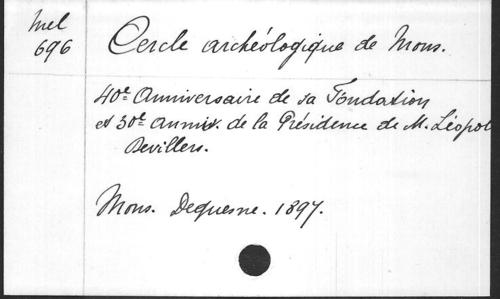 Mel
696
Cercle archéologique de Mons.
40e Anniversaire de sa Fondation
et 30e anniv. de la Présidence de M. Léopol
Devillers.
Mons. Dequesne. 1897.